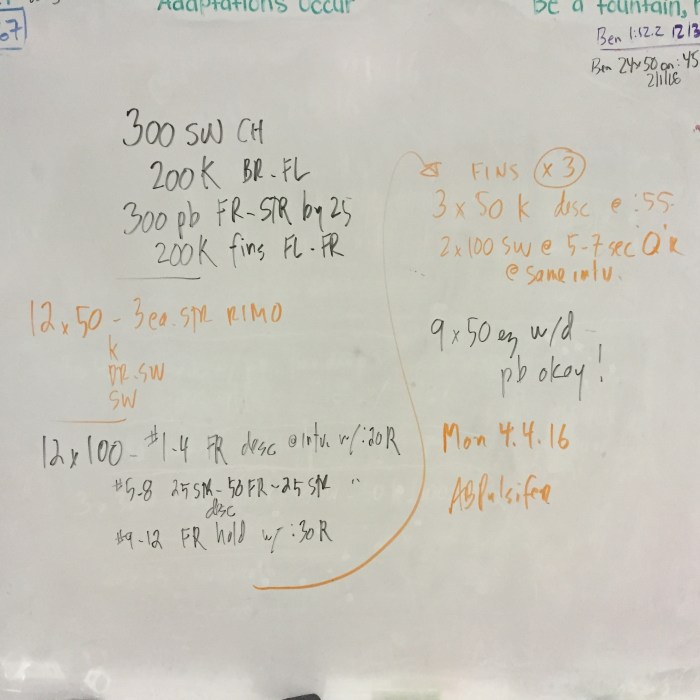 Adaptations Occur
Be a fountain,
67
Ben 1:12.2 12/3
Ben 24x50 on :45
2/1/16
300 SW CH
200 K BR-FL
300 pb FR-STR by 25
200K fins FL-FR
12x50 - 3 ea. STR RIMO
K
DR.SW
SW
12x100 - #1-4 FR desc @ intv. w/ :20R
#5-8 25 STR - 50 FR - 25 STR "
desc
#9-12 FR hold w/ :30R
FINS x3
3 x 50 K desc @ :55
2x100 SW @ 5-7 sec Q'K
@ same intv.
9x50 ez w/d
pb okay!
Mon 4.4.16
ABPulsifer